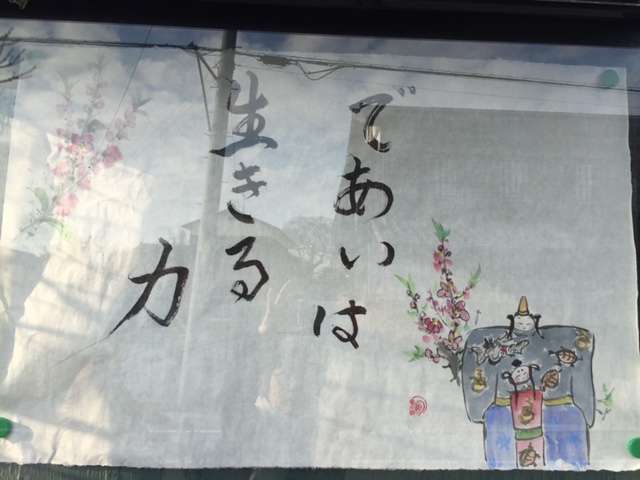 であいは
生きる
力